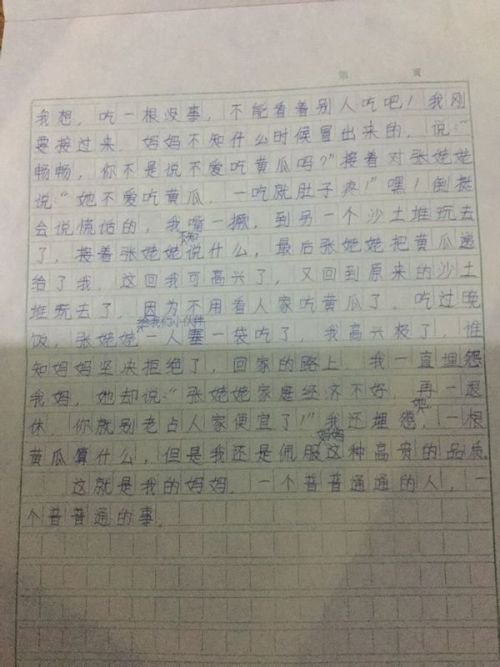 第 页
我想，吃一根没事，不能看着别人吃吧！我刚
要接过来，妈妈不知什么时候冒出来的，说：“
畅畅，你不是说不爱吃黄瓜吗？”接着对张姥姥
说：“她不爱吃黄瓜，一吃就肚子疼！”嘿！倒挺
会说慌话的，我嘴一撅，到另一个沙土堆玩去
了，接着张姥姥不知说什么，最后张姥姥把黄瓜递
给了我，这回我可高兴了，又回到原来的沙土
堆玩去了，因为不用看人家吃黄瓜了，吃过晚
饭，张姥姥给我们小伙伴一人塞一袋吃了，我高兴极了，谁
知妈妈坚决拒绝了，回家的路上，我一直埋怨
我妈，她却说：“张姥姥家庭经济不好，再一退
休，你就别老占人家便宜了！”我还埋怨她，一根
黄瓜算什么，但是我还是佩服妈妈这种高贵的品质
这就是我的妈妈，一个普普通通的人，一
个普普通的事，